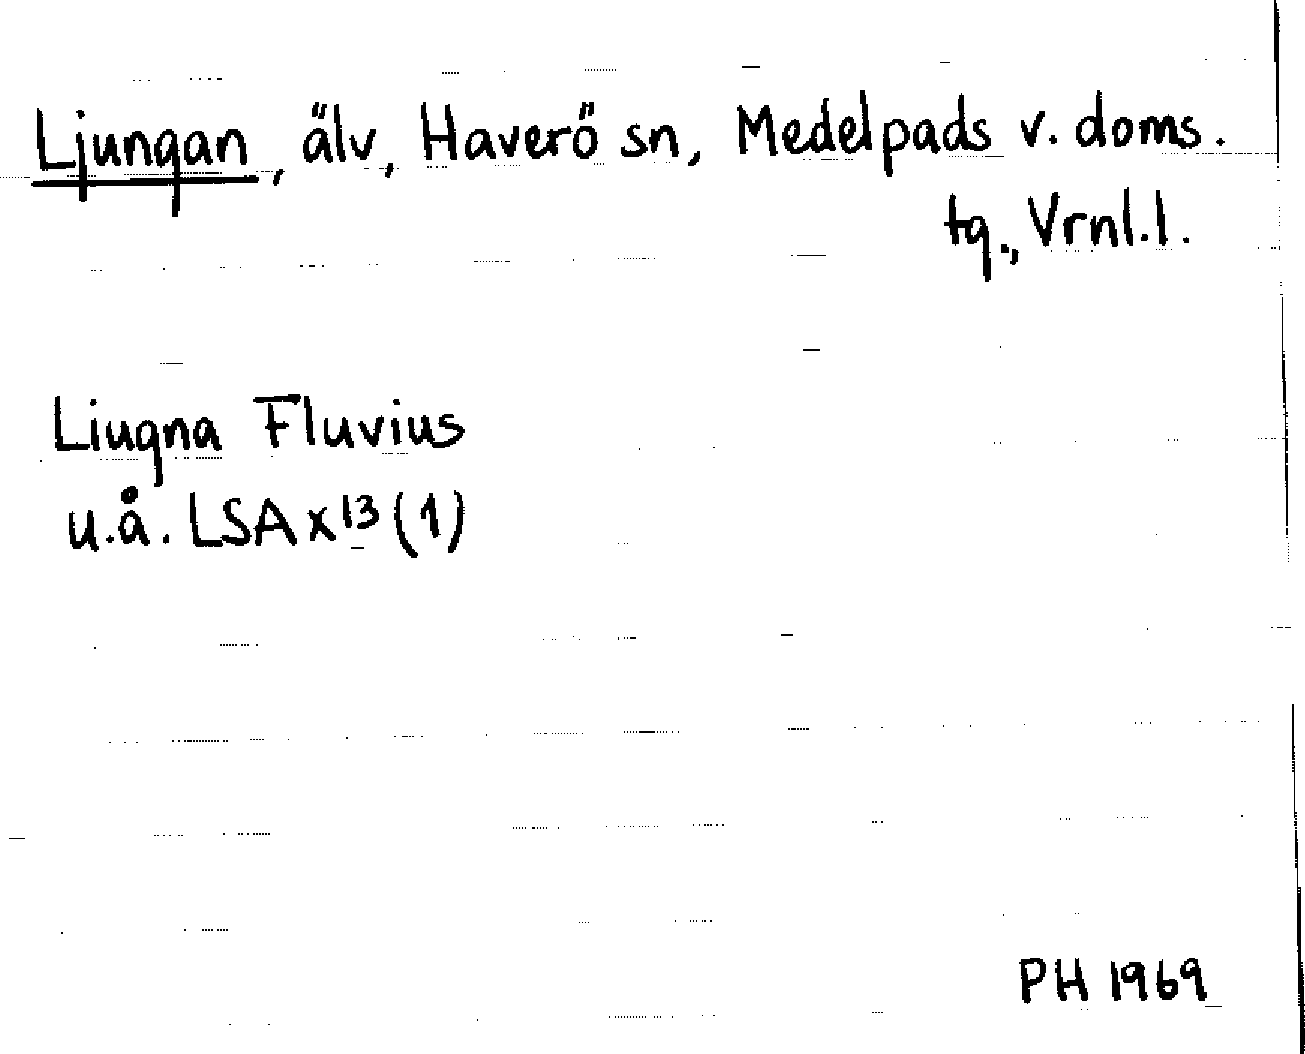 Ljungan, älv, Haverö sn, Medelpads v. doms.
tg., Vrnl.l.
Liugna Fluvius
u.å. LSA x 13 (1)
PH 1969